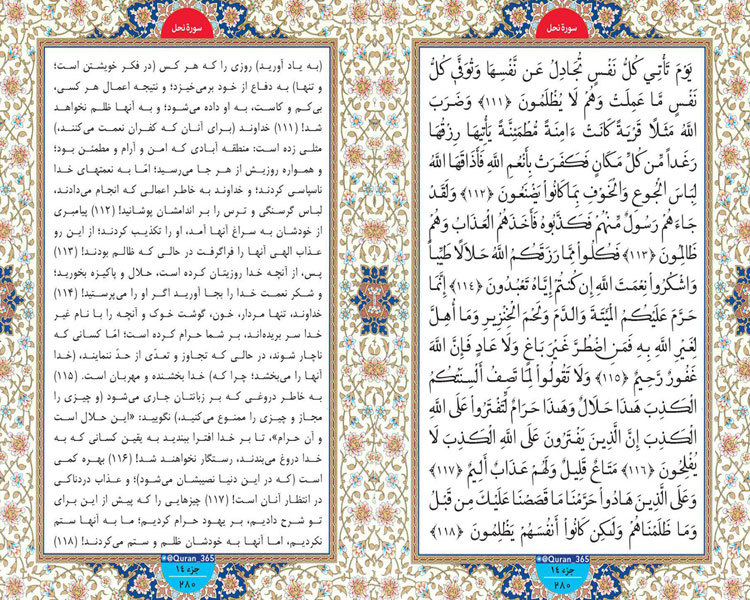 سورة نحل
یَوْمَ تَأْتِي كُلُّ نَفْسٍ تُجَادِلُ عَن نَّفْسِهَا وَتُوَفَّىٰ كُلُّ
نَفْسٍ مَّا عَمِلَتْ وَهُمْ لَا يُظْلَمُونَ ﴿١١١﴾ وَضَرَبَ
اللَّهُ مَثَلًا قَرْيَةً كَانَتْ ءَامِنَةً مُّطْمَئِنَّةً يَأْتِيهَا رِزْقُهَا
رَغَدًا مِّن كُلِّ مَكَانٍ فَكَفَرَتْ بِأَنْعُمِ اللَّهِ فَأَذَاقَهَا اللَّهُ
لِبَاسَ الْجُوعِ وَالْخَوْفِ بِمَا كَانُوا يَصْنَعُونَ ﴿١١٢﴾ وَلَقَدْ
جَاءَهُمْ رَسُولٌ مِّنْهُمْ فَكَذَّبُوهُ فَأَخَذَهُمُ الْعَذَابُ وَهُمْ
ظَالِمُونَ ﴿١١٣﴾ فَكُلُوا مِمَّا رَزَقَكُمُ اللَّهُ حَلَالًا طَيِّبًا
وَاشْكُرُوا نِعْمَتَ اللَّهِ إِن كُنتُمْ إِيَّاهُ تَعْبُدُونَ ﴿١١٤﴾ إِنَّمَا
حَرَّمَ عَلَيْكُمُ الْمَيْتَةَ وَالدَّمَ وَلَحْمَ الْخِنزِيرِ وَمَا أُهِلَّ
لِغَيْرِ اللَّهِ بِهِ فَمَنِ اضْطُرَّ غَيْرَ بَاغٍ وَلَا عَادٍ فَإِنَّ اللَّهَ
غَفُورٌ رَّحِيمٌ ﴿١١٥﴾ وَلَا تَقُولُوا لِمَا تَصِفُ أَلْسِنَتُكُمُ
الْكَذِبَ هَٰذَا حَلَالٌ وَهَٰذَا حَرَامٌ لِّتَفْتَرُوا عَلَى اللَّهِ
الْكَذِبَ إِنَّ الَّذِينَ يَفْتَرُونَ عَلَى اللَّهِ الْكَذِبَ لَا
يُفْلِحُونَ ﴿١١٦﴾ مَتَاعٌ قَلِيلٌ وَلَهُمْ عَذَابٌ أَلِيمٌ ﴿١١٧﴾
وَعَلَى الَّذِينَ هَادُوا حَرَّمْنَا مَا قَصَصْنَا عَلَيْكَ مِن قَبْلُ
وَمَا ظَلَمْنَاهُمْ وَلَٰكِن كَانُوا أَنفُسَهُمْ يَظْلِمُونَ ﴿١١٨﴾
@Quran_365
جزء ١٤
٢٨٠
سورة نحل
(به یاد آورید) روزی را که هر کس (در فکر خویشتن است؛
و تنها) به دفاع از خود برمی‌خیزد؛ و نتیجه اعمال هر کسی،
بی‌کم و کاست، به او داده می‌شود؛ و به آنها ظلم نخواهد
شد! (۱۱۱) خداوند (برای آنان که کفران نعمت می‌کنند،)
مثلی زده است: منطقه آبادی که امن و آرام و مطمئن بود؛
و همواره روزیش از هر جا می‌رسید؛ امّا به نعمتهای خدا
ناسپاسی کردند؛ و خداوند به خاطر اعمالی که انجام می‌دادند،
لباس گرسنگی و ترس را بر اندامشان پوشانید! (۱۱۲) پیامبری
از خودشان به سراغ آنها آمد، او را تکذیب کردند؛ از این رو
عذاب الهی آنها را فراگرفت در حالی که ظالم بودند! (۱۱۳)
پس، از آنچه خدا روزیتان کرده است، حلال و پاکیزه بخورید؛
و شکر نعمت خدا را بجا آورید اگر او را می‌پرستید! (۱۱۴)
خداوند، تنها مردار، خون، گوشت خوک و آنچه را با نام غیر
خدا سر بریده‌اند، بر شما حرام کرده است؛ امّا کسانی که
ناچار شوند، در حالی که تجاوز و تعدّی از حدّ ننمایند، (خدا
آنها را می‌بخشد؛ چرا که) خدا بخشنده و مهربان است. (۱۱۵)
به خاطر دروغی که بر زبانتان جاری می‌شود (و چیزی را
مجاز و چیزی را ممنوع می‌کنید،) نگویید: «این حلال است
و آن حرام»، تا بر خدا افترا ببندید به یقین کسانی که به
خدا دروغ می‌بندند، رستگار نخواهند شد! (۱۱۶) بهره کمی
است (که در این دنیا نصیبشان می‌شود)؛ و عذاب دردناکی
در انتظار آنان است! (۱۱۷) چیزهایی را که پیش از این برای
تو شرح دادیم، بر یهود حرام کردیم؛ ما به آنها ستم
نکردیم، اما آنها به خودشان ظلم و ستم می‌کردند! (۱۱۸)
@Quran_365
جزء ١٤
٢٨٠